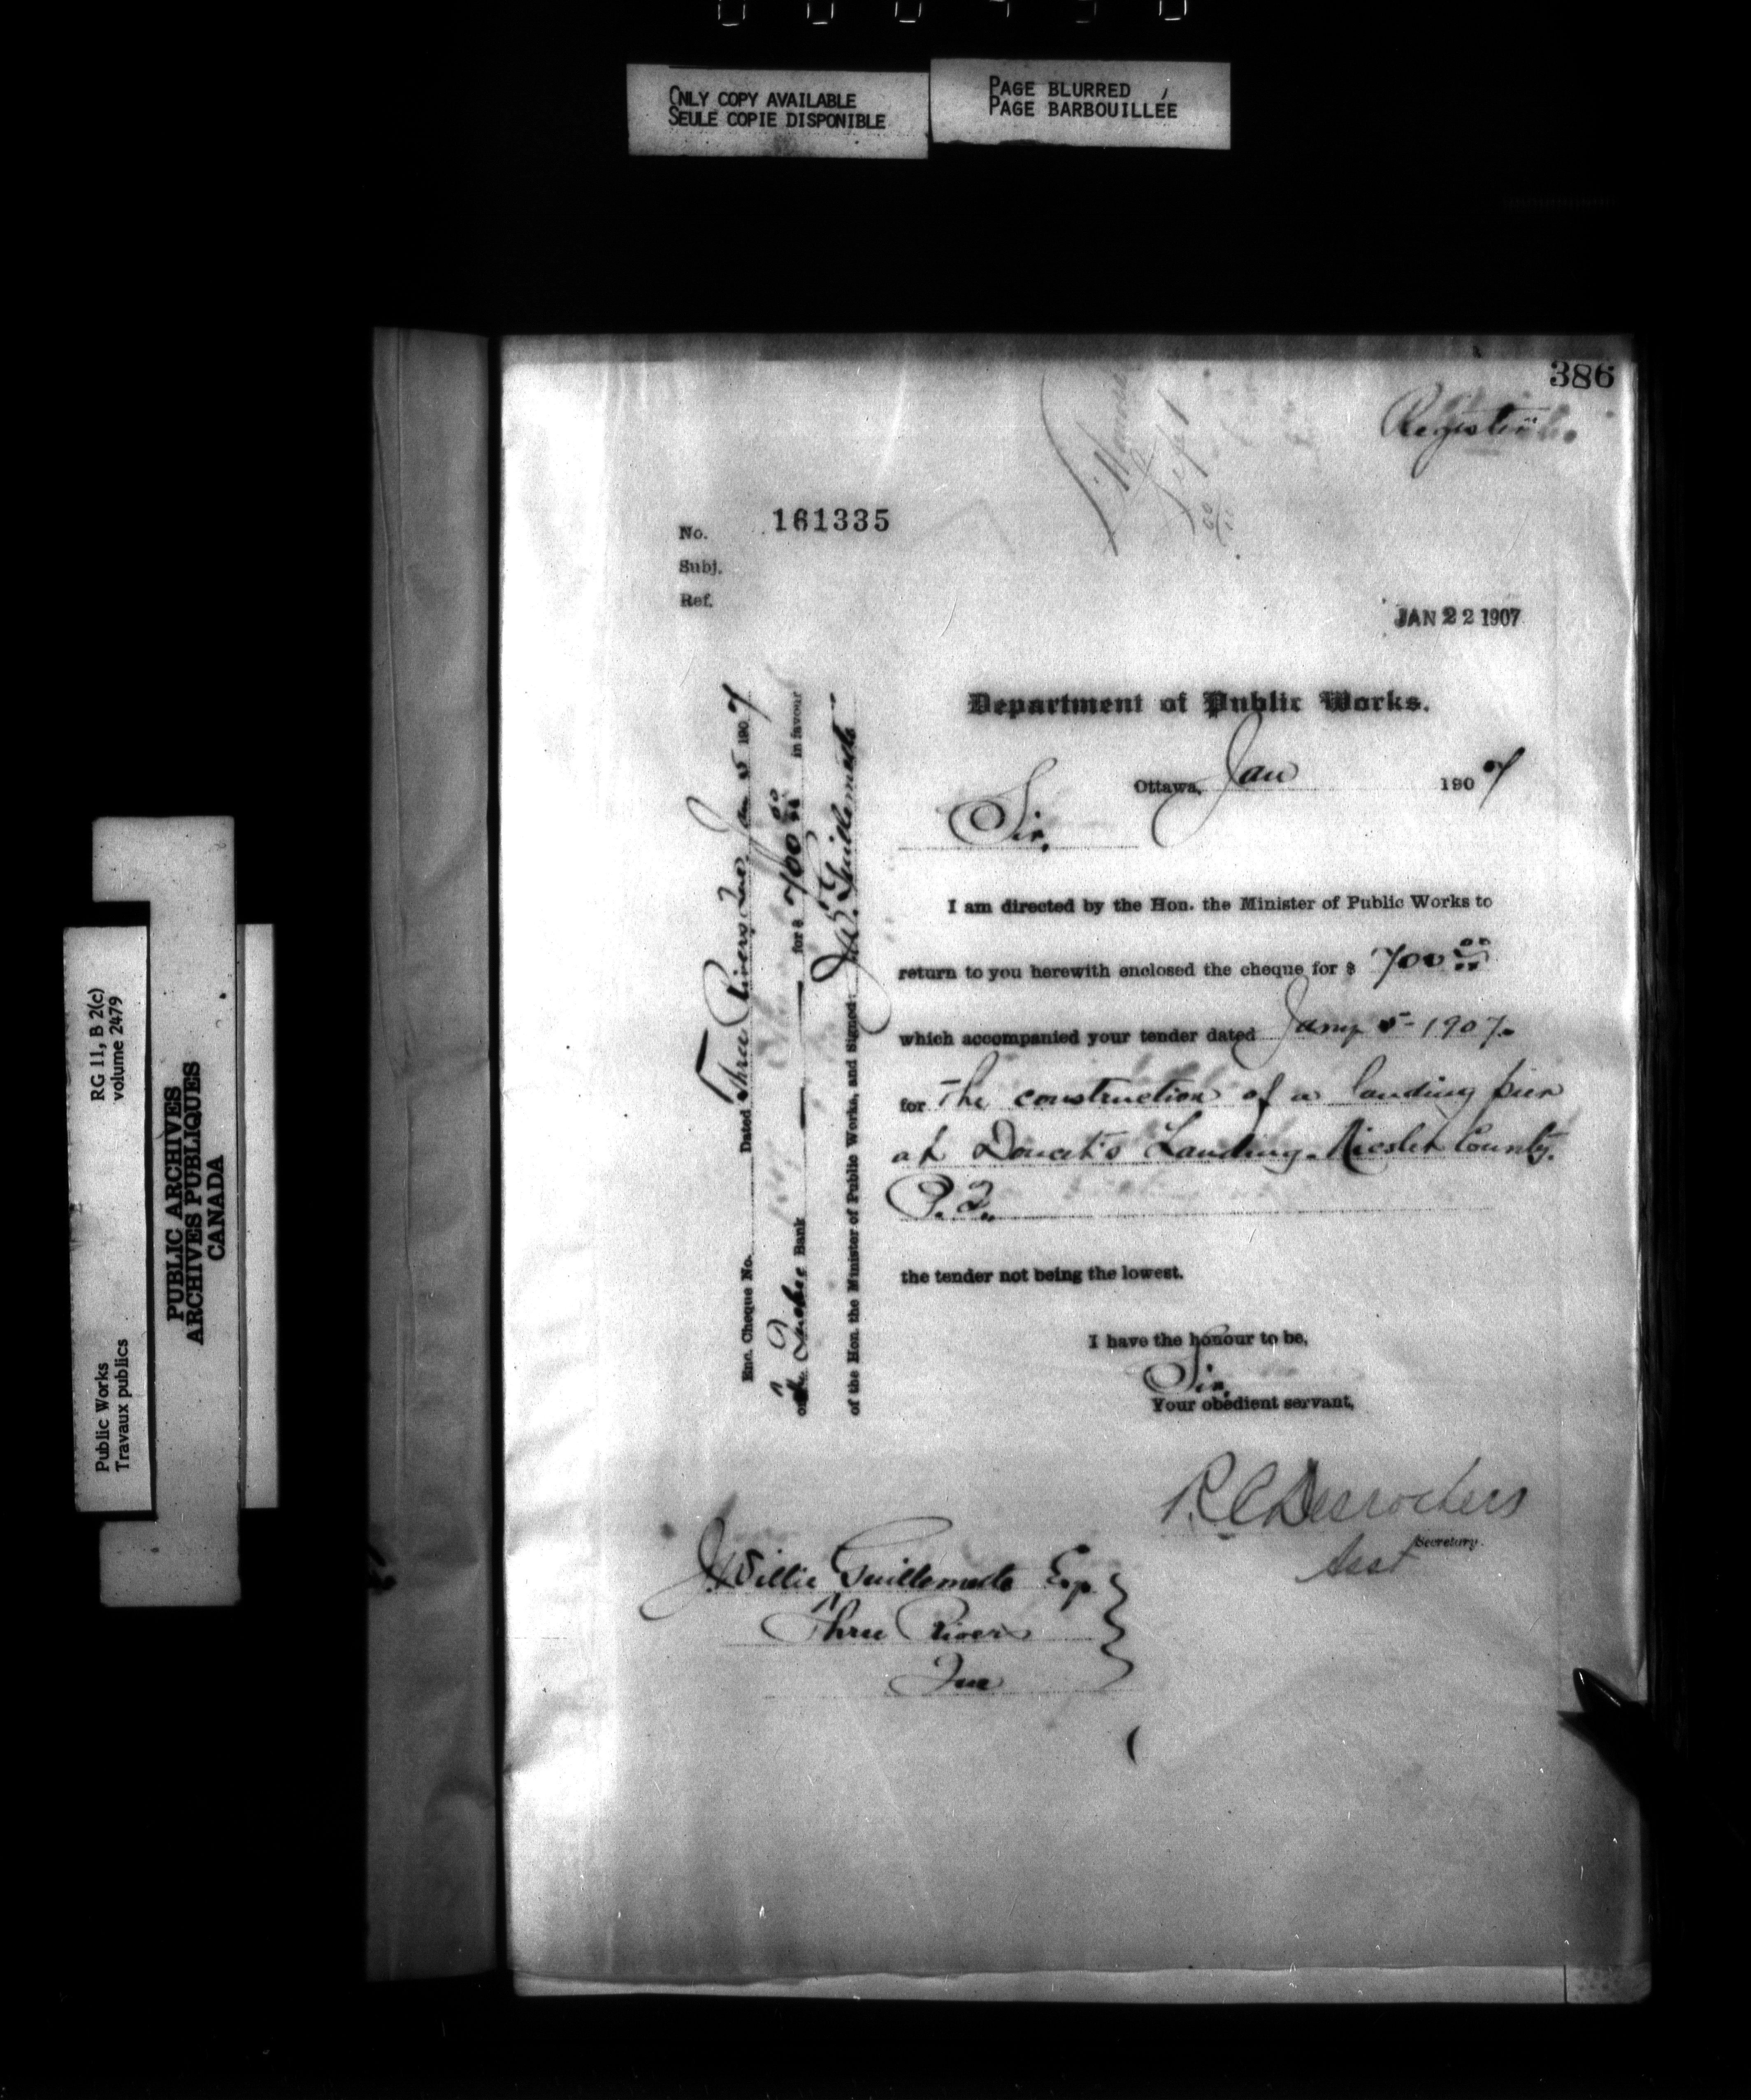 ONLY COPY AVAILABLE
SEULE COPIE DISPONIBLE
PAGE BLURRED
PAGE BARBOUILLÉE
386
Registered
No. 161335
Subj.
Ref.
JAN 22 1907
Department of Public Works.
Ottawa, Jan 1907
Sir,
I am directed by the Hon. the Minister of Public Works to
return to you herewith enclosed the cheque for $ 700 00
which accompanied your tender dated Jany 5- 1907.
for The construction of a landing pier
at Doucet's Landing. Nicolet County.
P.Q.
the tender not being the lowest.
I have the honour to be,
Sir,
Your obedient servant,
R C Desrochers
Asst Secretary.
J. Willie Guillemette Esq
Three Rivers
Que
Enc. Cheque No. Dated Three Rivers, Que, Jan 5 1907
on the Quebec Bank for $ 700 00 in favour
of the Hon. the Minister of Public Works, and Signed: J.W. Guillemette
Public Works
Travaux publics
RG 11, B 2(c)
volume 2479
PUBLIC ARCHIVES
ARCHIVES PUBLIQUES
CANADA